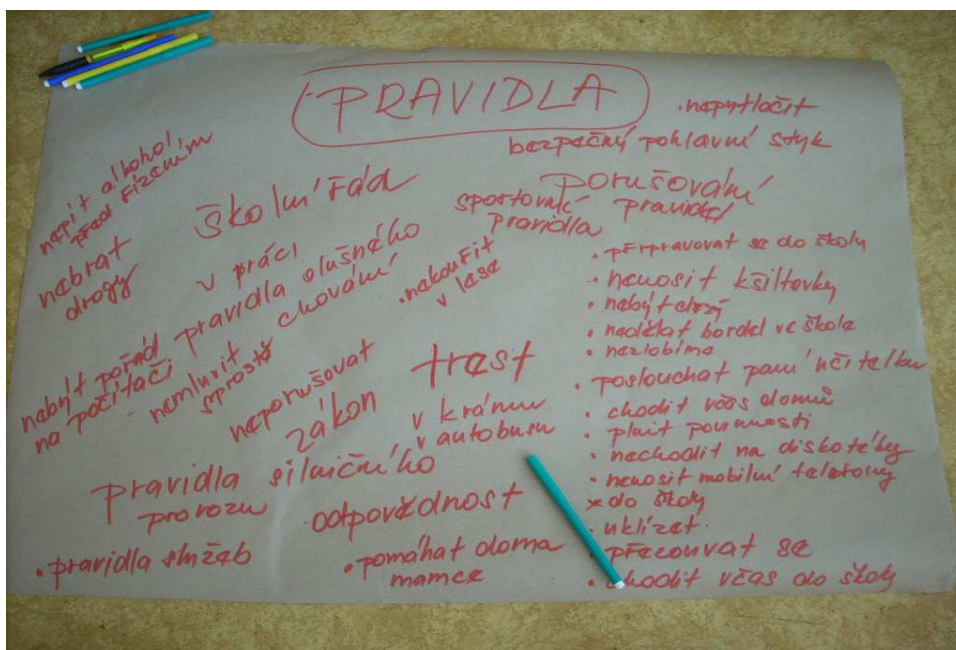 PRAVIDLA
• nepytlačit
bezpečný pohlavní styk
nepít alkohol,
před řízením
nebrat
drogy
školní řád
sportovní
pravidla
porušování
pravidel
v práci
pravidla slušného
chování
• nekouřit
v lese
nebýt pořád
na počítači
- nemluvit
sprostě
neporušovat
zákon
trest
v krámu
v autobusu
pravidla silničního
provozu
odpovědnost
• pravidla služeb
• pomáhat doma
mamce
• připravovat se do školy
• nenosit kšiltovky
• nebýt drzý
• nedělat bordel ve škole
• nezlobíme
• poslouchat paní učitelku
• chodit včas domů
• plnit povinnosti
• nechodit na diskotéky
• nenosit mobilní telefony
do školy
• uklízet
• přezouvat se
• chodit včas do školy